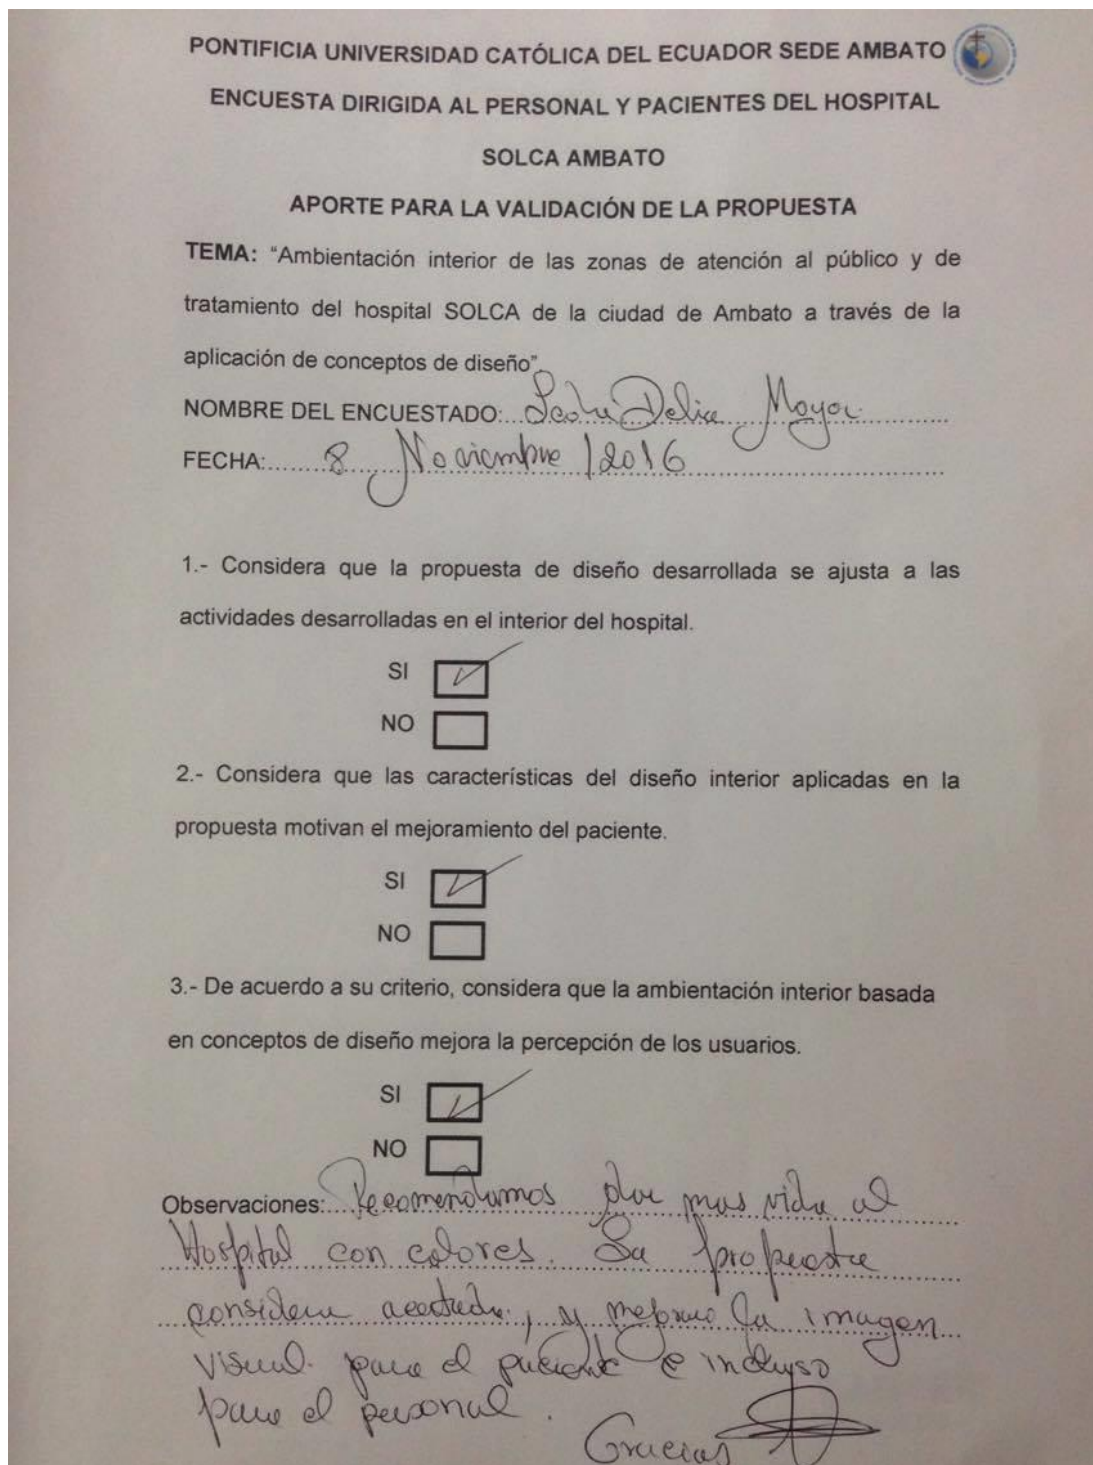 PONTIFICIA UNIVERSIDAD CATÓLICA DEL ECUADOR SEDE AMBATO
ENCUESTA DIRIGIDA AL PERSONAL Y PACIENTES DEL HOSPITAL
SOLCA AMBATO
APORTE PARA LA VALIDACIÓN DE LA PROPUESTA
TEMA: “Ambientación interior de las zonas de atención al público y de
tratamiento del hospital SOLCA de la ciudad de Ambato a través de la
aplicación de conceptos de diseño”.
NOMBRE DEL ENCUESTADO: Mayor
FECHA: 8 Noviembre / 2016
1.- Considera que la propuesta de diseño desarrollada se ajusta a las
actividades desarrolladas en el interior del hospital.
SI
NO
2.- Considera que las características del diseño interior aplicadas en la
propuesta motivan el mejoramiento del paciente.
SI
NO
3.- De acuerdo a su criterio, considera que la ambientación interior basada
en conceptos de diseño mejora la percepción de los usuarios.
SI
NO
Observaciones: Recomendamos dar mas vida al
Hospital con colores. La propuesta
considero acertada, y mejora la imagen
visual para el paciente e incluso
para el personal.
Gracias